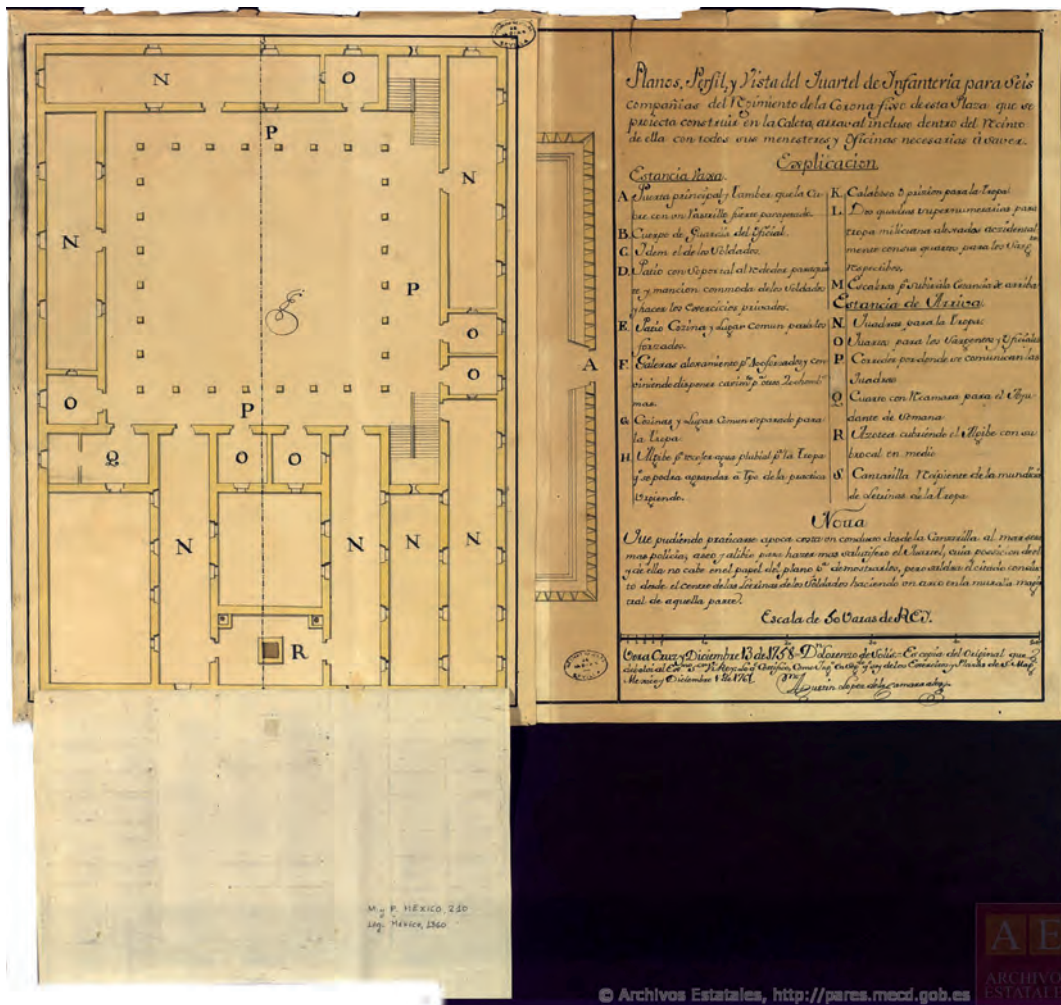 N
O
P
N
N
P
O
O
O
P
Q
O
O
N
N
N
N
R
A
Planos, Perfil, y Vista del Quartel de Infanteria para Seis
compañias del Regimiento de la Corona fixo de esta Plaza que se
proiecta construir en la Caleta, arraval incluso dentro del Recinto
de ella con todos sus menesteres y Oficinas necesarias à saver.
Explicacion
Estancia vaxa.
A Puerta principal y Tambor que la Cu-
bre con un Rastrillo fuerte para
B. Cuerpo de Guardia del Oficial.
C. Idem el de los Soldados.
D. Patio con Soportal al rededor para
y mancion commoda de los Soldados
y hacer los Exercicios privados.
E. Patio Cozina y Lugar Comun para los
forzados.
F. Galeras aloxamiento pa forzados y con
viniendo disponer
mas.
G. Cozinas y Lugar Comun separado para
la tropa
H. Algibe pa recoxer agua plubial pa la tropa
qe se podra agrandar à Tpo. de la practica
K. Calabozo ò pricion para la tropa
L. Dos quadras supernumerarias para
tropa miliciana aloxadas accidental
mente con sus quartos para los Sargtos
respectibos.
M Escaleras pa subir à la Estancia de arriba
Estancia de Arriva.
N. Quadras para la tropa
O Quartos para los Sargentos y Oficiales
P Corredor por donde se comunican las
Quadras
Q Cuarto con Recamara para el Ayu-
dante de Semana
R Azotea cubriendo el Algibe con su
brocal en medio
S. Cantarilla Recipiente de la mundicia
de Letrinas de la tropa
Nota
Que pudiendo praticarse apoca costa un conducto desde la Cantarilla al mar sera
mas policia, aseo y alibio para hacer mas salutifero el Quartel, cuia posecion de el
y de ella no cabe en el papel del plano pa demostrarlos, pero saldra el citado conduc-
to desde el centro de las Letrinas de los Soldados haciendo un arco en la muralla magis-
tral de aquella parte.
Escala de 50 Varas de
Vera Cruz y Diciembre 13 de 1758 Dn Lorenzo de Solis = Es copia del Original que
Mexico y Diciembre 1 de 1761
Agustin Lopez de la Camara alta
M. y P. MÉXICO, 210
Leg. México, 1360
AE
ARCHIVOS
ESTATALES
© Archivos Estatales, http://pares.mecd.gob.es